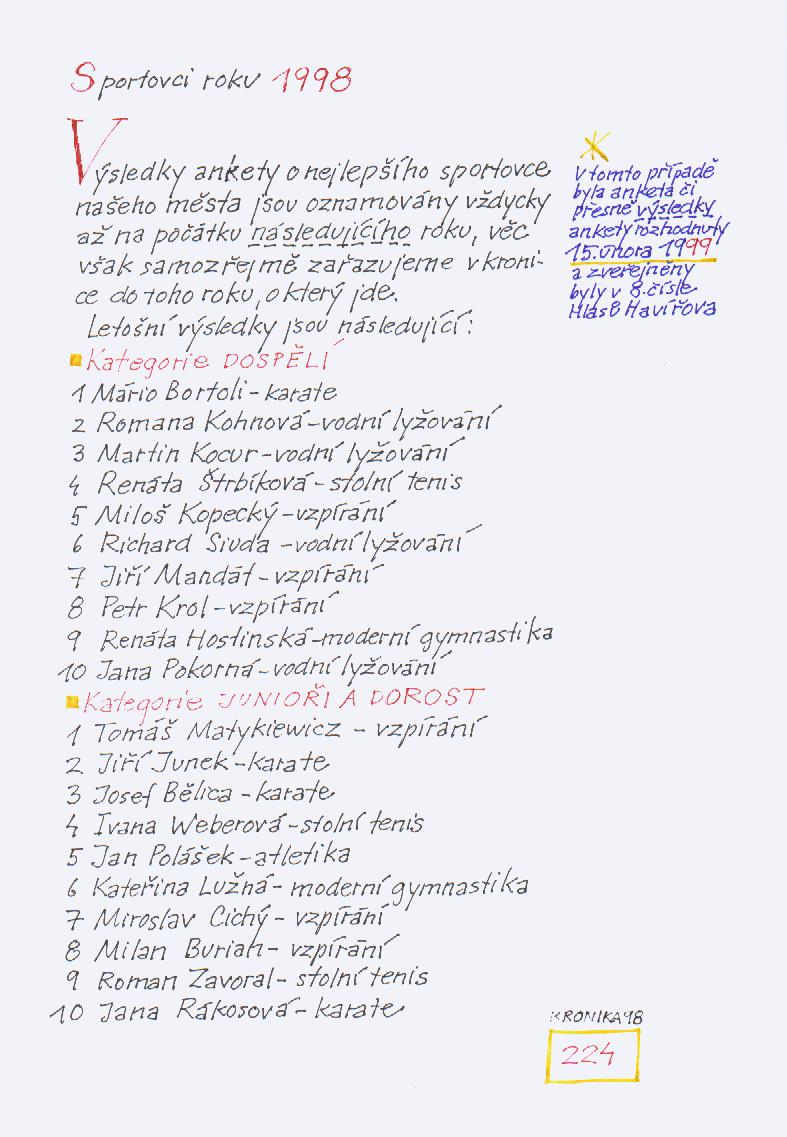 Sportovci roku 1998
Výsledky ankety o nejlepšího sportovce
našeho města jsou oznamovány vždycky
až na počátku následujícího roku, věc
však samozřejmě zařazujeme v kroni-
ce do toho roku, o který jde.
Letošní výsledky jsou následující:
Kategorie DOSPĚLÍ
1 Mário Bortoli - karate
2 Romana Kohnová - vodní lyžování
3 Martin Kocur - vodní lyžování
4 Renáta Štrbíková - stolní tenis
5 Miloš Kopecký - vzpírání
6 Richard Siuda - vodní lyžování
7 Jiří Mandát - vzpírání
8 Petr Krol - vzpírání
9 Renáta Hostinská - moderní gymnastika
10 Jana Pokorná - vodní lyžování
Kategorie JUNIOŘI A DOROST
1 Tomáš Matykiewicz - vzpírání
2 Jiří Junek - karate
3 Josef Bělica - karate
4 Ivana Weberová - stolní tenis
5 Jan Polášek - atletika
6 Kateřina Lužná - moderní gymnastika
7 Miroslav Cichý - vzpírání
8 Milan Burian - vzpírání
9 Roman Zavoral - stolní tenis
10 Jana Rákosová - karate
*
V tomto případě
byla anketa či
přesně výsledky
ankety rozhodnuty
15. února 1999
a zveřejněny
byly v 8. čísle
Hlasů Havířova
KRONIKA 98
224